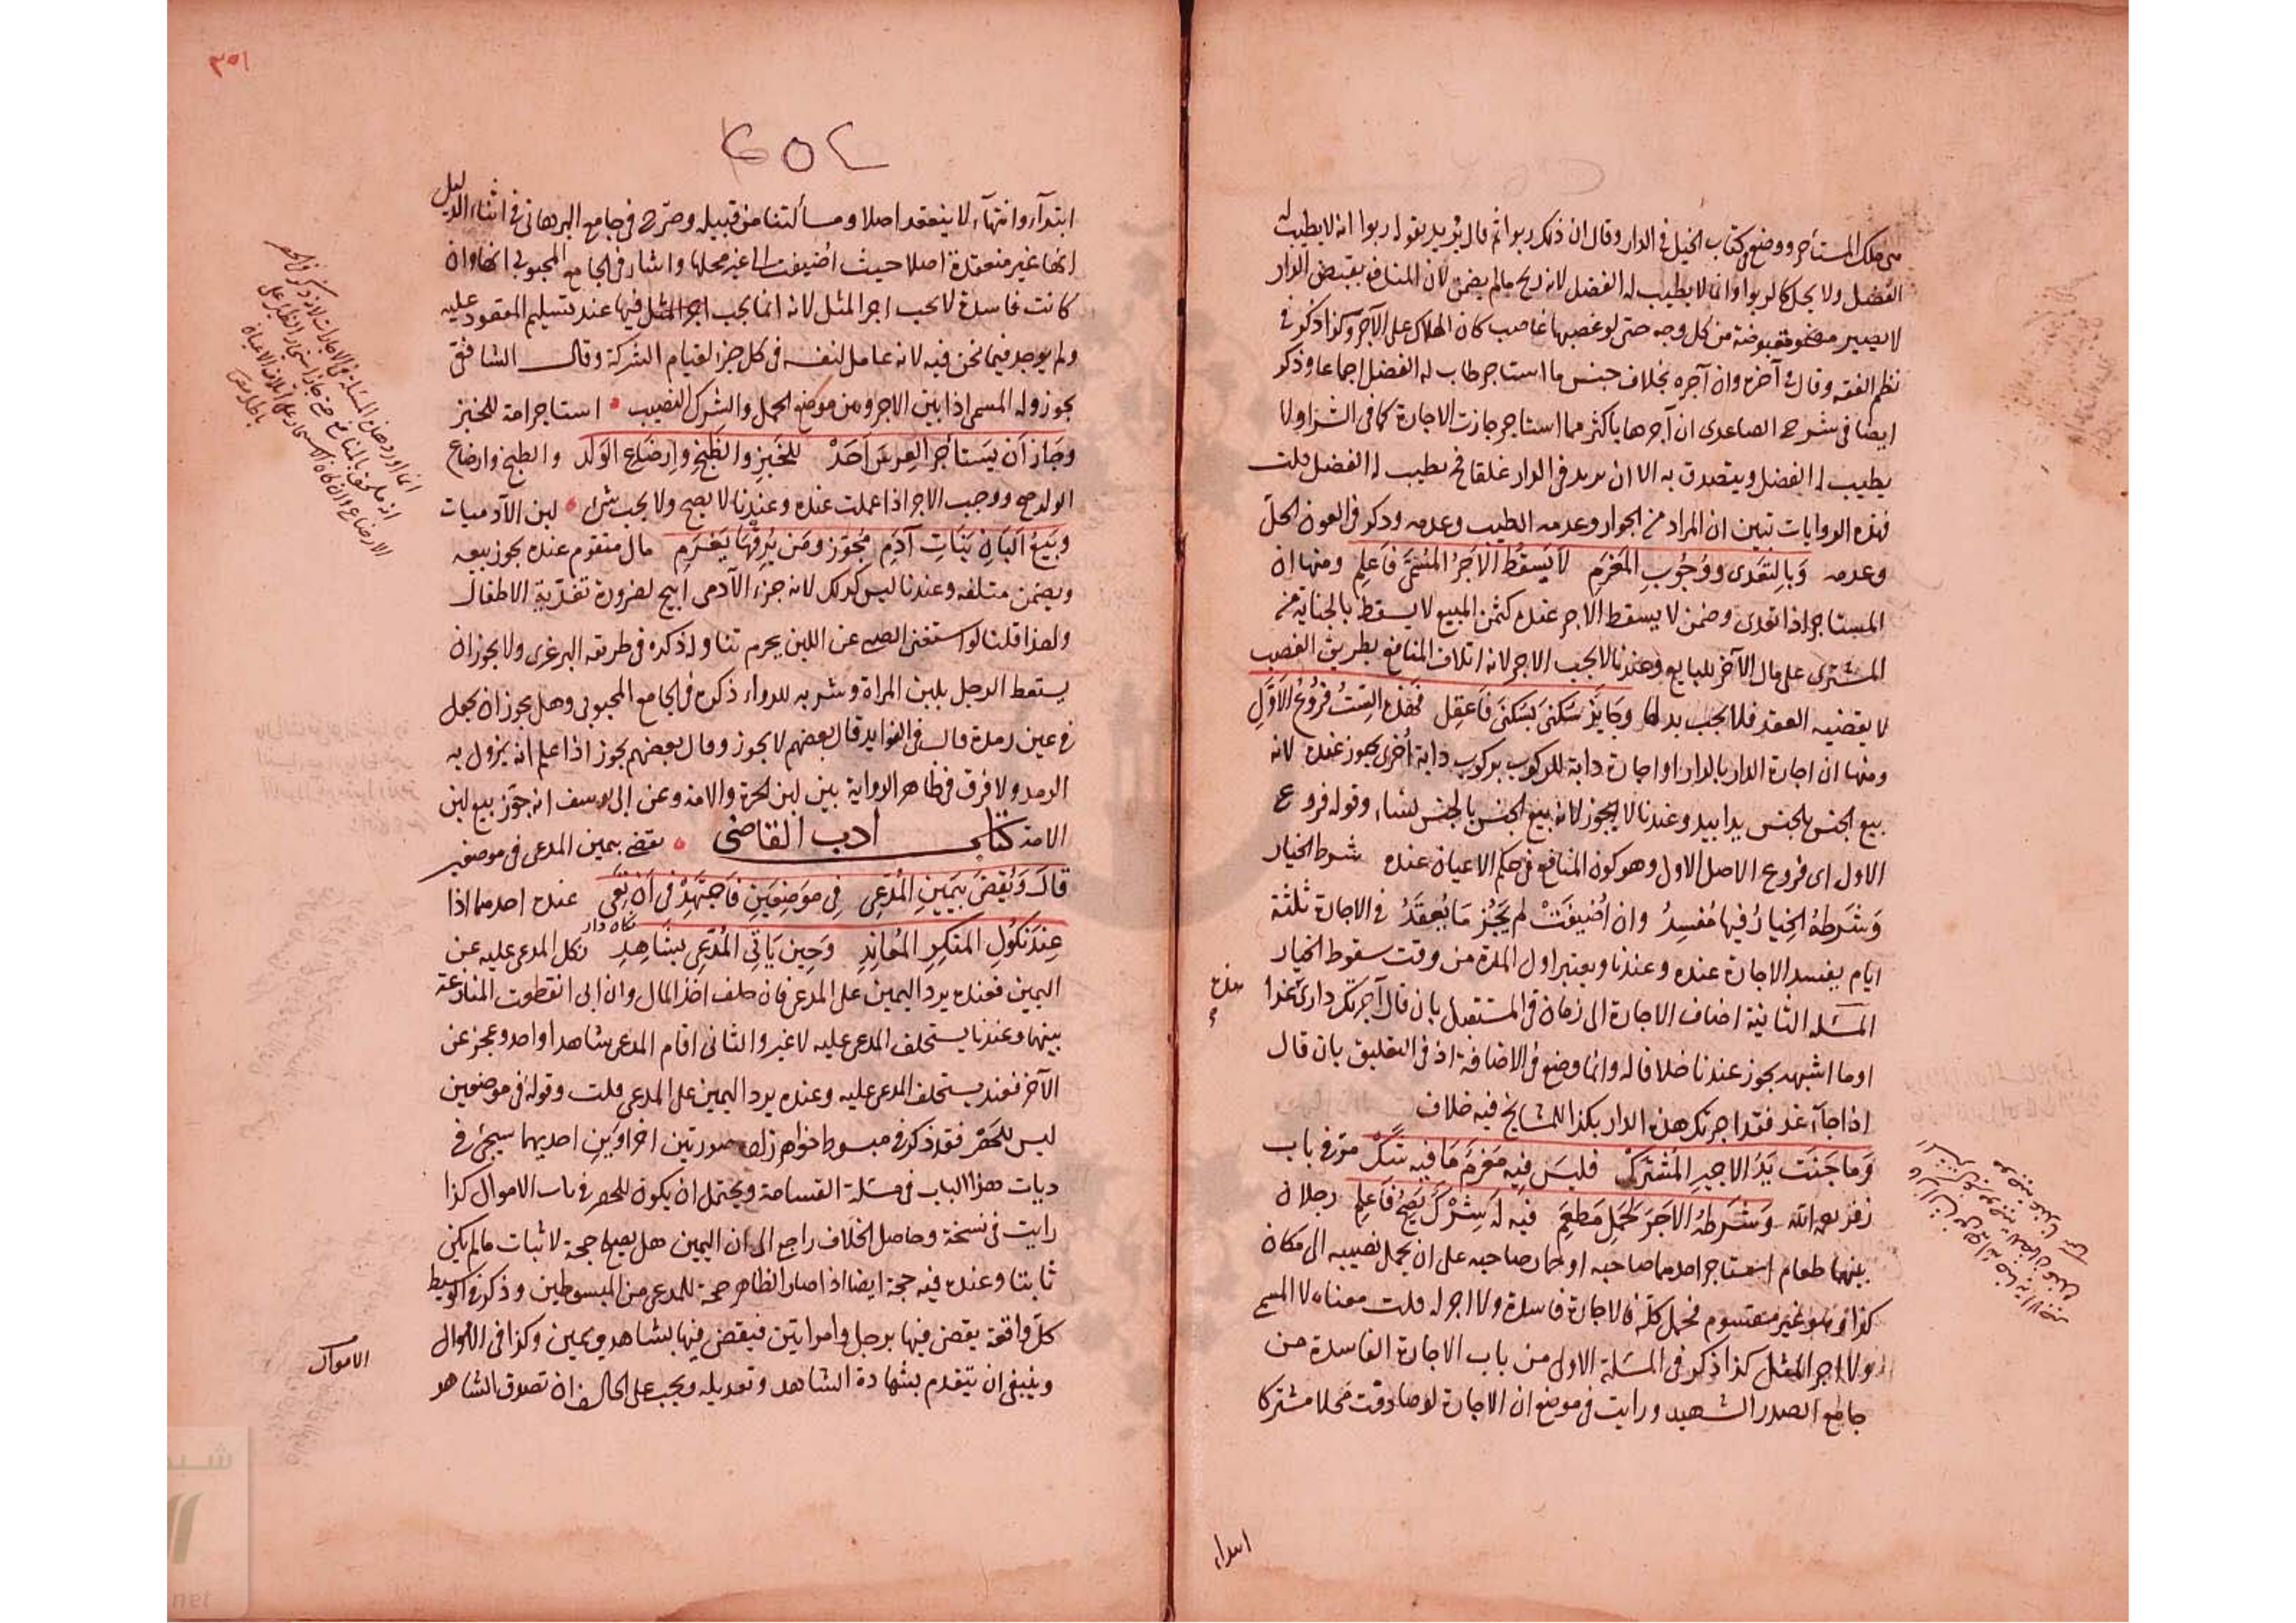 من ملك المستأجر ووضع في كتاب الحيل في الدار وقال ان ذلك ربوا ثم قال يريد بقوله ربوا انه لا يطيب له
الفضل ولا يحل كالربوا وانما لا يطيب له الفضل لانه ربح مالم يضمن لان المنافع بقبض الدار
لا يصير مقبوضة من كل وجه حتى لو غصبها غاصب كان الهلاك على الآجر وكذا ذكر في
نظم الفقه وقال في آخره وان آجره بخلاف جنس ما استاجر طاب له الفضل اجماعا وذكر
ايضا في شرح الصاعدى ان آجرها باكثر مما استاجر جازت الاجارة كما في الشراء ولا
يطيب له الفضل ويتصدق به الا ان يزيد في الدار غلقا فح يطيب له الفضل قلت
فهذه الروايات تبين ان المراد من الجواز وعدمه الطيب وعدمه وذكر في العون الحل
وعدمه وَبِالتَعَدى ووُجُوبِ المَغرَمِ لَا يَسقُطُ الاَجرُ المُسَمَّى فَاعلِم ومنها ان
المستاجر اذا تعدى وضمن لا يسقط الاجر عنده كثمن المبيع لا يسقط بالجناية من
المشترى على مال الآخر للبايع وعندنا لا يجب الاجر لانه اتلاف المنافع بطريق الغصب
لا يقضيه العقد فلا يجب بدلها وجَايزٌ سَكنىَ بسَكنىَ فَاعقِل فهَذه السِتُّ فرُوعُ الاَوَّلِ
ومنها ان اجارة الدار بالدار او اجارة دابة للركوب بركوب دابة أخرى يجوز عنده لانه
بيع الجنس بالجنس يدا بيد وعندنا لا يجوز لانه بيع الجنس بالجنس نساء وقوله فروع
الاول اى فروع الاصل الاول وهو كون المنافع في حكم الاعيان عنده شرط الخيار
وَشَرطهُ الخِيارَ فيها مُفسِدُ وان أُضيفَتْ لم يَجُز مَا يُعقَدُ في الاجارة ثلثة
ايام يفسد الاجارة عنده وعندنا ويعتبر اول المدة من وقت سقوط الخيار
المسئله الثانية اضاف الاجارة الى زمان في المستقبل بان قال آجرتك دارى غدا
او ما اشبهه يجوز عندنا خلافا له وانما وضع في الاضافة اذ في التعليق بان قال
اذا جآء غد فقد اجرتك هذه الدار بكذا للمشايخ فيه خلاف
وَما جَنَت يَدُ الاجيرِ المُشترَك فليسَ فيه مَغرَمَ مَا فيه شَكّ مرّ في باب
زفر رحمه الله وشَرطهُ الاَجرَ لحَملِ مَطعَمِ فيه لَه شِرْكٌ يَصِحُّ فَاعلِم رجلان
بينهما طعام استاجر احدهما صاحبه او حمار صاحبه على ان يحمل نصيبه الى مكان
كذا وهو غير مقسوم فحمل كله فالاجارة فاسدة ولا اجر له قلت معناه لا المسمى
ولا اجر المثل كذا ذكر في المسئلة الاولى من باب الاجارة الفاسدة من
جامع الصدر الشهيد ورايت في موضع ان الاجارة لو صادفت محلا مشتركا
ابتداء
٣٥١
ابتدآء وانتهآء لا ينعقد اصلا ومسألتنا من قبيله وصرح في جامع البرهاني في اثناء الدليل
انها غير منعقدة اصلا حيث أضيفت الى غير محلها واشار في الجامع المحبوبي انها وان
كانت فاسدة لا يجب اجر المثل لانه انما يجب اجر المثل فيها عند تسليم المعقود عليه
ولم يوجد فيما نحن فيه لانه عامل لنفسه في كل جزء لقيام الشركة وقال الشافعي
يجوز وله المسمى اذا بين الاجر ومن موضع الحمل والشرك النصيب استاجر امة للخبز
وجَازَ اَن يَستأجرَ العِرسَ اَحَدْ للخَبزِ والطَبخِ وارضَاعِ الوَلَد والطبخ وارضاع
الولد صح ووجب الاجر اذا عملت عنده وعندنا لا يصح ولا يجب شئ لبن الآدميات
وبَيعُ اَلبَانِ بَنَاتِ آدَمِ مُجَوَّز ومَن يُرِقْهَا يَغرَمِ مال متقوم عنده يجوز بيعه
ويضمن متلفه وعندنا ليس كذلك لانه جزء الآدمى ابيح لضرورة تغذية الاطفال
ولهذا قلنا لو استغنى الصبي عن اللبن يحرم تناوله ذكره في طريقه البرغرى ولا يجوز ان
يستعط الرجل بلبن المراة وشربه للدواء ذكره في الجامع المحبوبى وهل يجوز ان يجعل
في عين رمدة قال في الفوايد قال بعضهم لا يجوز وقال بعضهم يجوز اذا علم انه يزول به
الرمد ولا فرق في ظاهر الرواية بين لبن الحرة والامة وعن ابى يوسف انه جوّز بيع لبن
الامة كتاب ادب القاضى يقضى بيمين المدعى في موضعين
قالَ وَيُقضَى بيَمِينِ المُدّعِى في مَوضِعَينِ فَاجتَهِدْ في اَن تَعِى عنده احدهما اذا
عِندَ نكُولِ المنكِرِ المُعانِدِ وَحِين يَأتِى المُدّعِى بشَاهِدِ نكل المدعى عليه عن
اليمين فعنده يرد اليمين على المدعى فان حلف اخذ المال وان ابى انقطعت المنازعة
بينهما وعندنا يستحلف المدعى عليه لا غير والثانى اقام المدعى شاهدا واحدا وعجز عن
الآخر فعندنا يستحلف المدعى عليه وعنده يرد اليمين على المدعى قلت وقوله في موضعين
ليس للحصر فقد ذكر في مبسوط خواهر زاده صورتين اخراوين احديهما سيجئ في
ديات هذا الباب في مسئلة القسامة ويحتمل ان يكون للحصر في باب الاموال كذا
رايت في نسخة وحاصل الخلاف راجع الى ان اليمين هل يصلح حجة لاثبات مالم يكن
ثابتا وعنده فيه حجة ايضا اذا صار الظاهر حجة للمدعى من المبسوطين وذكر في الوسيط
كل واقعة يقضى فيها برجل وامراتين فيقضى فيها بشاهد ويمين وكذا في الاموال
وينبغى ان يتقدم بشهادة الشاهد وتعديله ويجب على الحالف ان تصدق الشاهد
الاموال